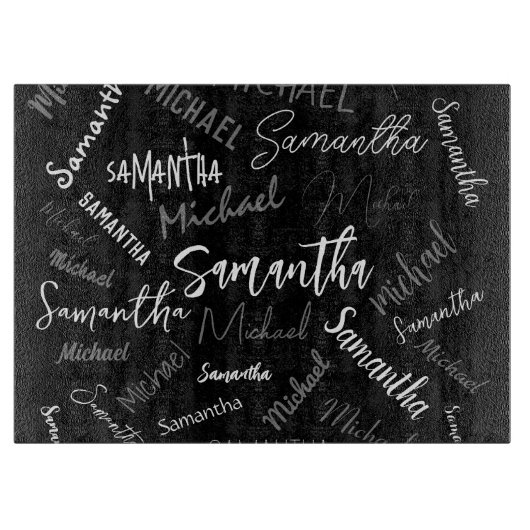 MICHAEL
Michael
MICHAEL
Samantha
Samantha
Samantha
SAMANTHA
Michael
Michael
SAMANTHA
Michael
Michael
Samantha
Michael
Samantha
Michael
Samantha
Samantha
Michael
Michael
Michael
Samantha
Michael
Samantha
Samantha
Michael
Michael
Samantha
Samantha
SAMANTHA